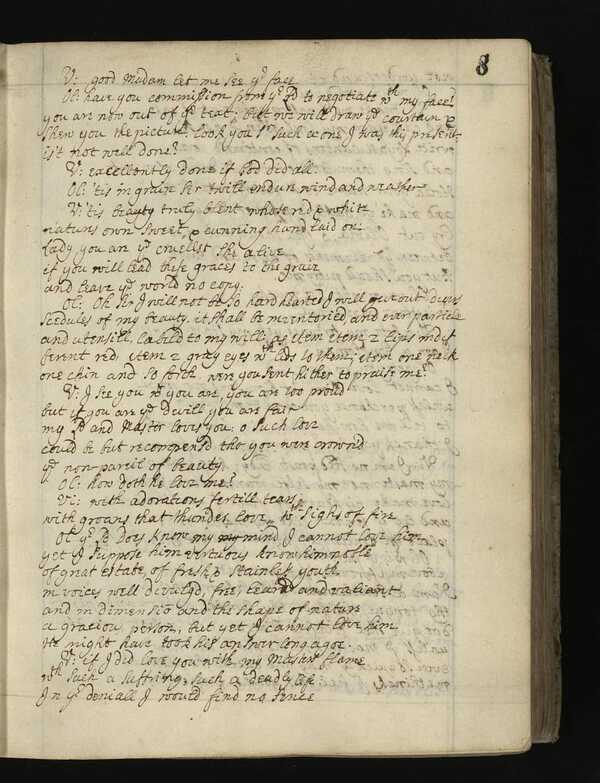 8
V: good Madam let me see yr face
Ol: have you commission from yr Ld to negotiate wth my face!
you are now out of yr text; but we will draw ye courtain &
shew you the picture. look you Sr such a one I was this present
is't not well done?
V: excellently done if God did all.
Ol: 'tis in grain Sir twill endure wind and weather
V: 'tis beauty truly blent whose red & white
natures own sweet, & cunning hand laid on.
Lady you are ye cruelist she alive
if you will lead these graces to the grave
and leave ye world no copy.
Ol: Oh Sir I will not be so hard hearted I will give out divers
scedules of my beauty. it shall be inventoried, and evry particle
and utensill, labild to my will: as item item 2 lips indif
ferent red item 2 grey eyes wth lids to them; item one neck
one chin and so forth. were you sent hither to praise me?
V: I see you wt you are, you are too proud
but if you are ye Devill you are fair
my Ld and Master loves you: o such love
could be but recompens'd tho you were crown'd
ye non-pareil of beauty
Ol: how doth he love me?
Vi: with adorations fertill tears,
with groans that thunder love, wth sighs of fire
Ol: yr Ld does know my my mind I cannot love him
yet I suppose him vertuous know him noble
of great estate, of fresh & stainless youth
in voices well divulgd, free, learnd and valiant
and in dimensio and the shape of nature
a gracious person, but yet I cannot love him
He might have took his answer long agoe.
V: if I did love you with my Masters flame
wth such a suffring, such a deadly life
In yr deniall I would find no sence